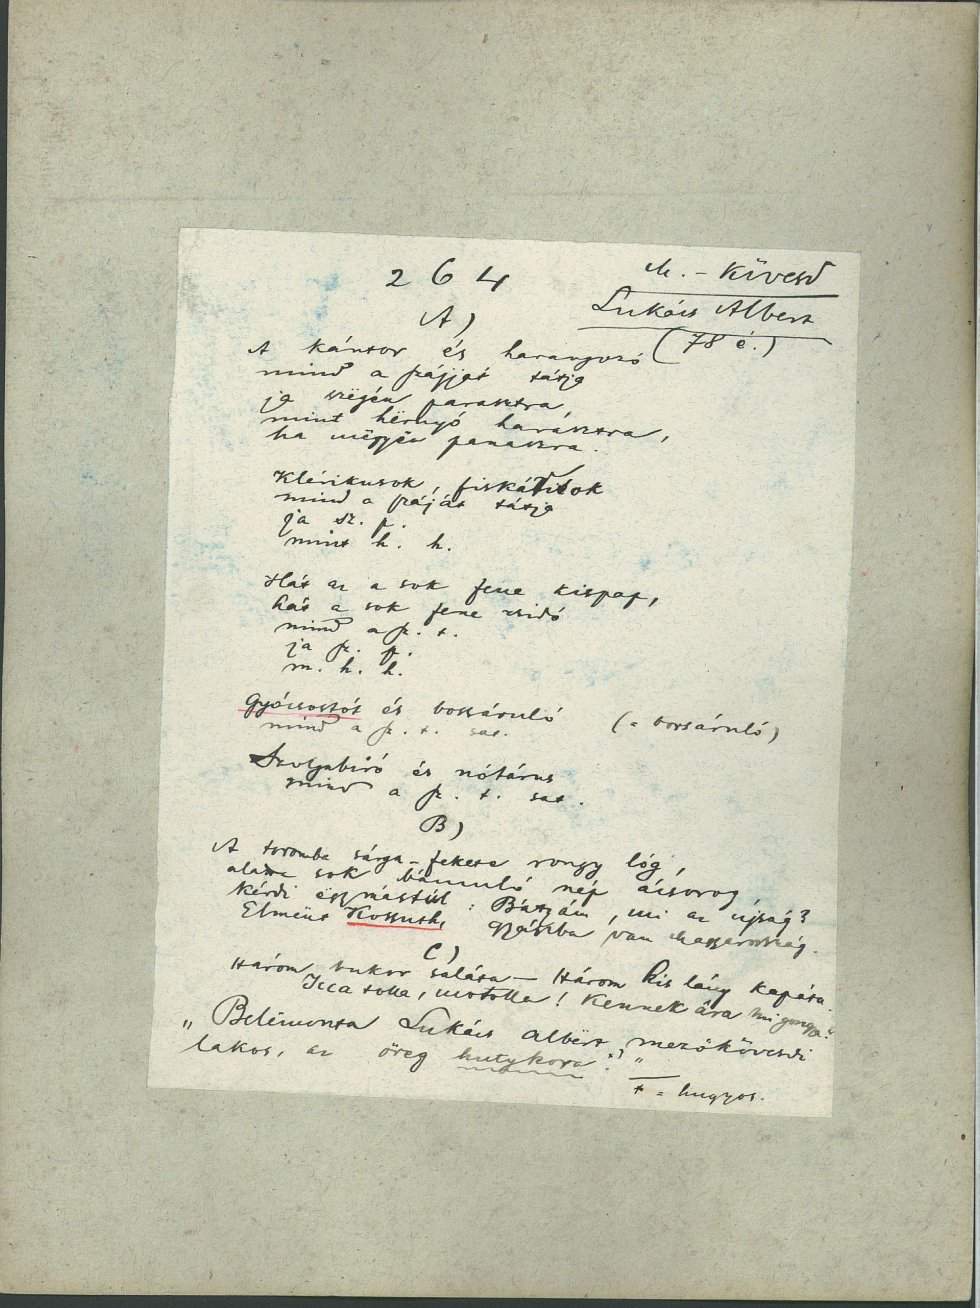 264
M. - Kövesd
Lukács Albert
(78 é.)
A)
A kántor és harangozó
mind a száját tátja
ja szëjén parasztra,
mint hërnyó harasztra,
ha mëgyën panaszra.
Klérikusok, fiskálisok
mind a száját tátja
ja sz. p.
mint h. h.
Hát az a sok fene kispap,
hát a sok fene zsidó
mind a sz. t.
ja sz. p.
m. h. h.
Gyócsostót és bossáruló (= borsáruló)
mind a sz. t. sat.
Szolgabiró és nótárus
mind a sz. t. sat.
B)
A toromba sárga-fekete rongy lóg,
alatta sok bámuló nép ácsorog,
kérdi ëgymástúl: Bátyám, mi az ujság?
Elmënt Kossuth, gyászba van Magyarország.
C)
Három bukor saláta – Három kis lány kapáta
Icca tolla, motolla! Kennek ára
„Belémonta Lukács Albërt mezőkövesdi
lakos, az öreg hutykora
+ = hugyos.